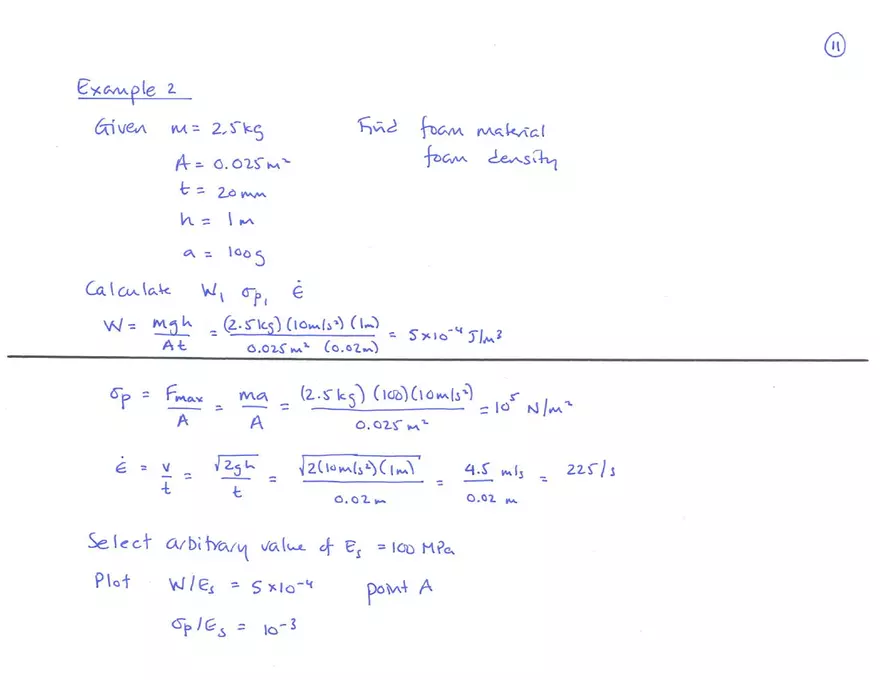 11
Example 2
Given m = 2.5kg Find foam material
A = 0.025m² foam density
t = 20mm
h = 1m
a = 100g
Calculate W, σp, ε̇
W = mgh/At = (2.5kg)(10m/s²)(1m)/0.025m² (0.02m) = 5×10⁻⁴ J/m³
σp = Fmax/A = ma/A = (2.5kg)(100)(10m/s²)/0.025m² = 10⁵ N/m²
ε̇ = v/t = √2gh/t = √2(10m/s²)(1m)/0.02m = 4.5 m/s/0.02 m = 225/s
Select arbitrary value of Es = 100 MPa
Plot W/Es = 5×10⁻⁴ point A
σp/Es = 10⁻³